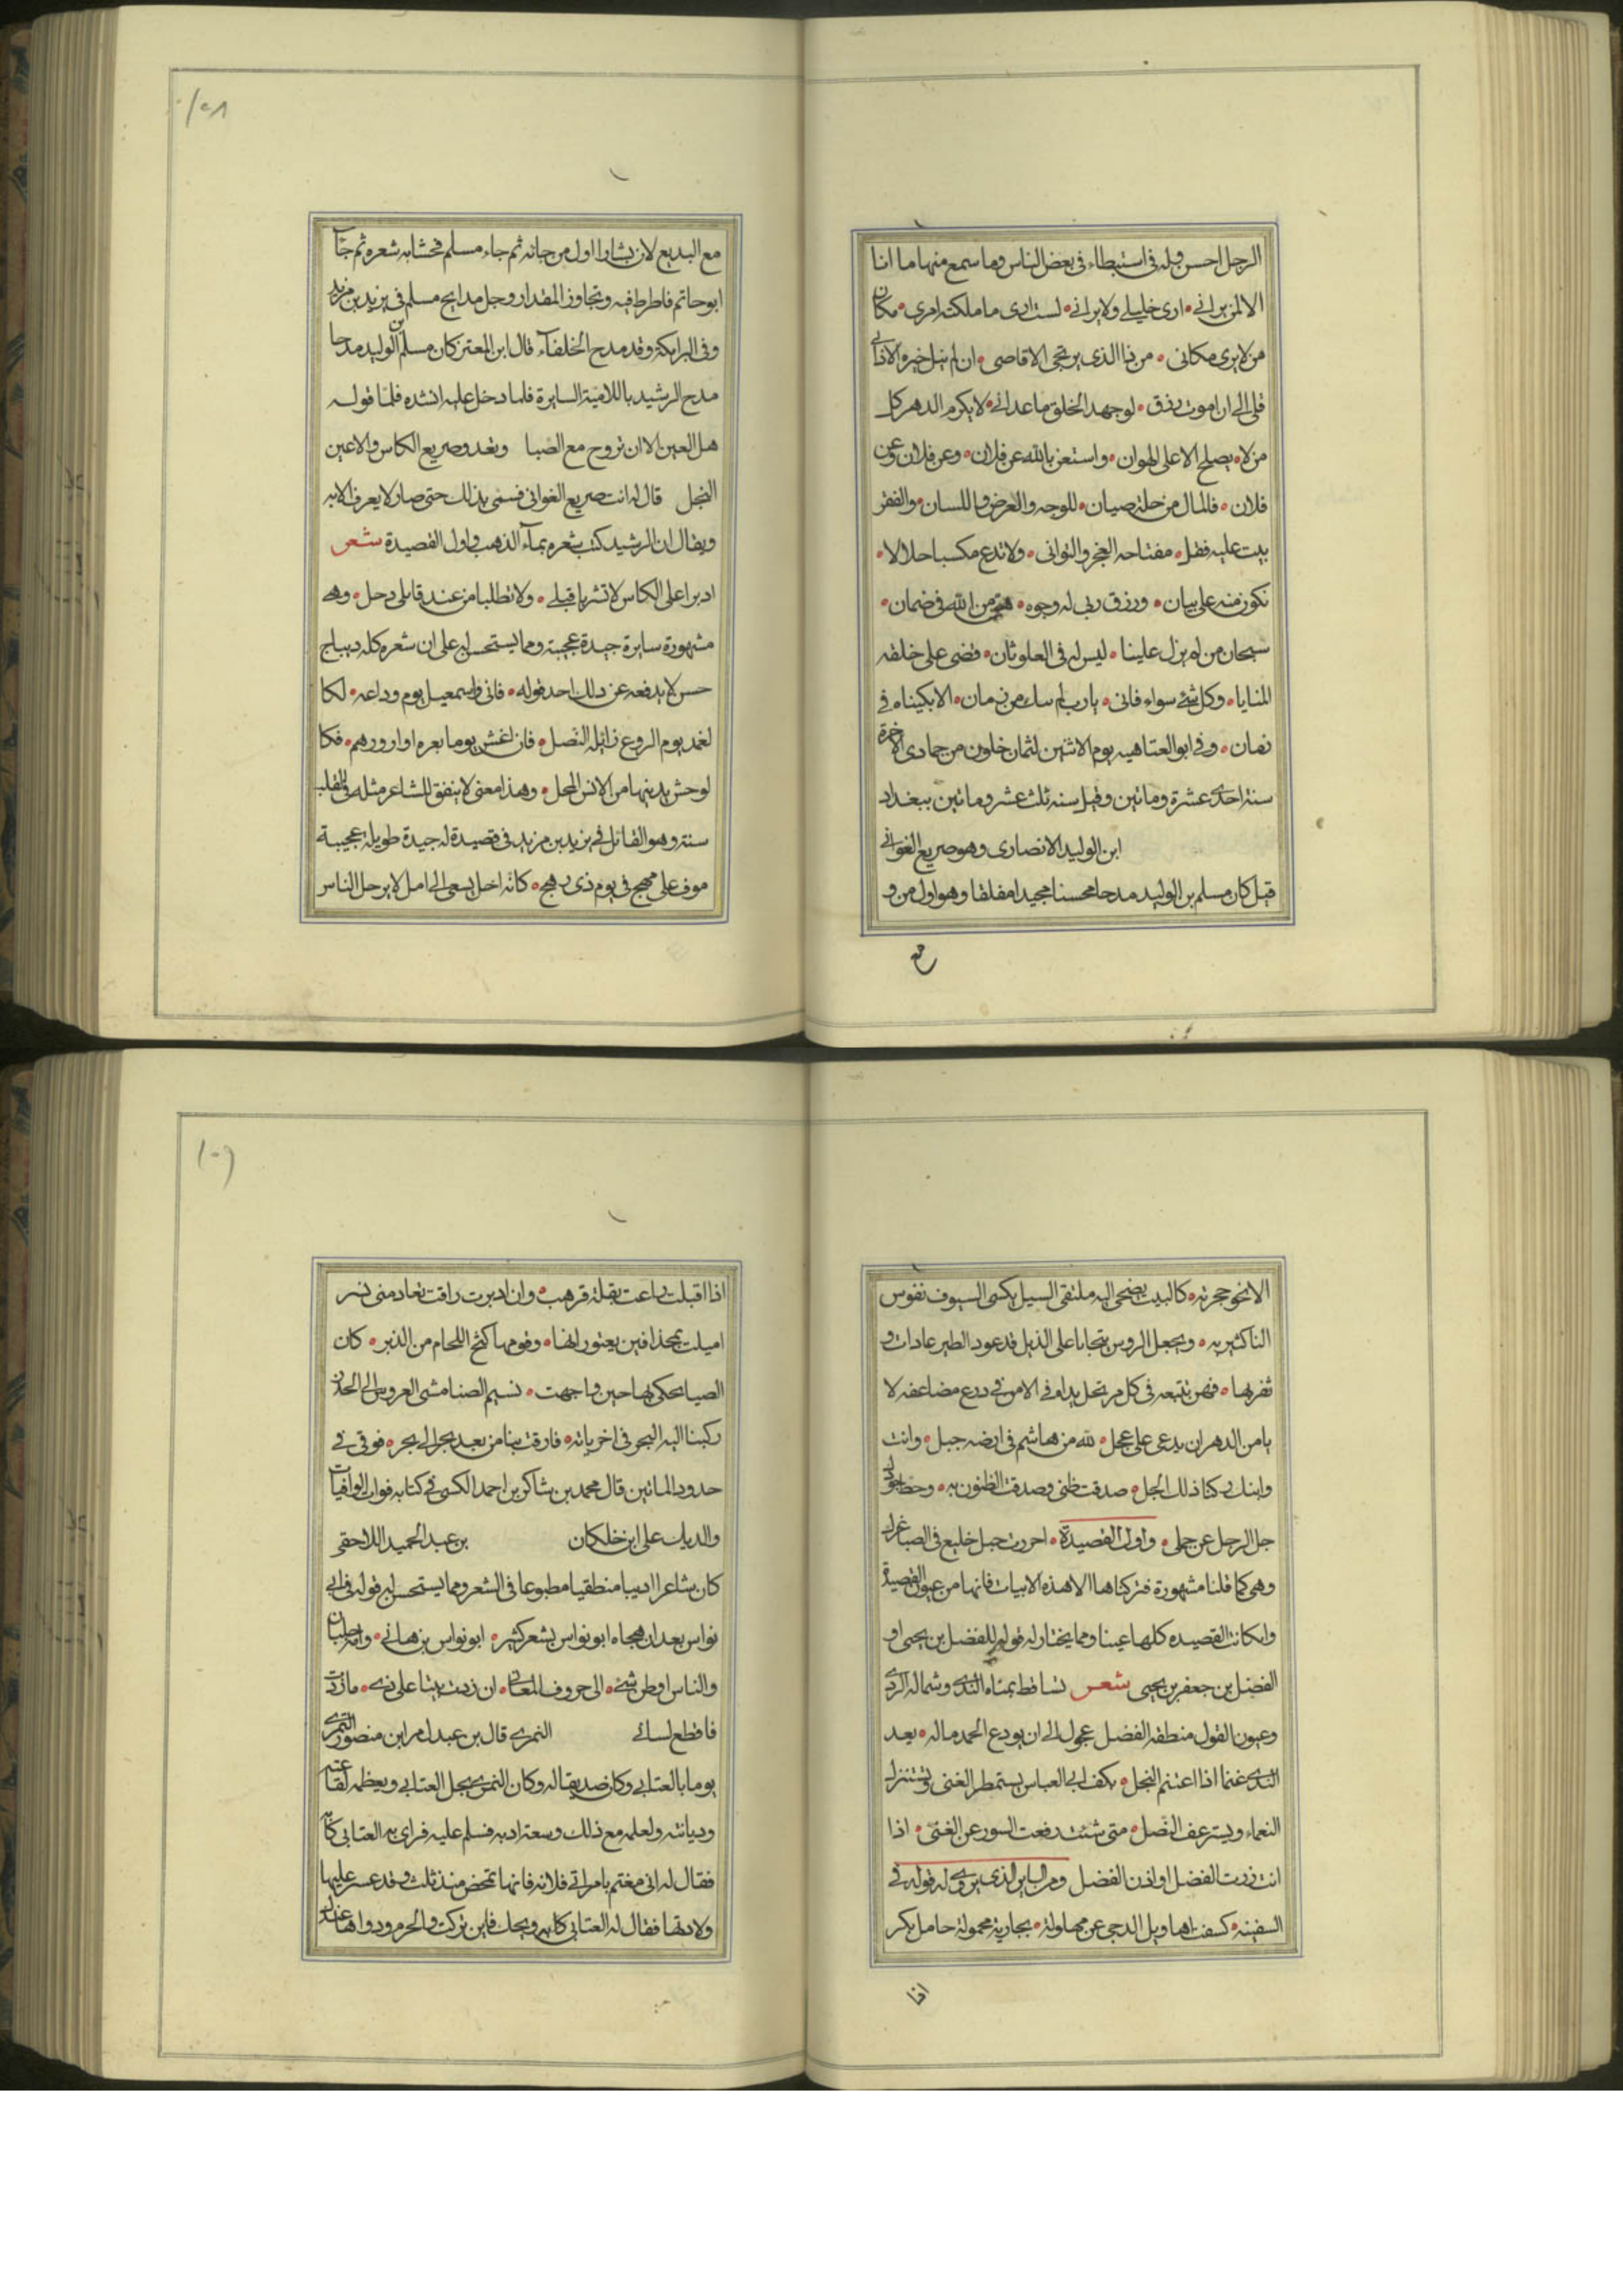 الرجل احسن قوله في استبطاء في بعض الناس وما سمع منها ما انا
الا لمن يراني • ارى خليلي ولا يراني • لست ارى ما ملكت امرى • مكان
من لا يرى مكاني • من ذا الذي يرتجى الاقاصى • ان لم ينل خيره الاداني
قلى الى ان اموت رزق • لو جهد الخلق ما عداني • لا يكرم الدهر كل
من لا • يصلح الا على الهوان • واستغن بالله عن فلان • وعن فلان وعن
فلان • فالمال من حلة صيان • للوجه والعرض واللسان • والفقر
بيت عليه فقل • مفتاحه العجز والتواني • ولا تدع مكسبا حلالا •
تكون منه على بيان • ورزق ربى له وجوه • هن من الله في ضمان •
سبحان من لم يزل علينا • ليس له في العلو ثان • قضى على خلقه
المنايا • وكل شئ سواه فانى • يارب لم ... من زمان • الا بكيناه في
زمان • وفي ابو العتاهيه يوم الاثنين لثمان خلون من جمادى الاخرة
سنة احدى عشرة وماتين وقيل سنه ثلث عشر وماتين ببغداد
ابن الوليد الانصارى وهو صريع الغواني
قيل كان مسلم بن الوليد مدحا محسنا مجيدا مفلقا وهو اول من و
مع
١٥٨
مع البديع لان بشاوا اول من جانه ثم جاء مسلم فحشابه شعره ثم جاء
ابو حاتم فاطرط فيه وتجاوز المقدار وجل مدايح مسلم في يزيد بن مزيد
وفي البرامكة وقد مدح الخلفاء قال ابن المعتز كان مسلم بن الوليد مدحا
مدح الرشيد باللامية السايرة فلما دخل عليه انشده فلما قوله
هل العين الا ان تروح مع الصبا وتغد وصريع الكاس والاعين
النجل قال له انت صريع الغواني فسمى بذلك حتى صار لا يعرف الا به
ويقال ان الرشيد كتب شعره بماء الذهب واول القصيدة شعر
اديرا على الكاس لا تشربا قبلي • ولا تطلبا من عند قاتلي دحل • وهي
مشهورة سايرة جيدة عجيبة ومما يستحسن له على ان شعره كله ديباج
حسن لا يدفعه عن ذلك احد قوله • فانى واسمعيل يوم وداعه • لكا
لغمد يوم الروع زايله النصل • فان اغش يوما بعره او ازورهم • فكا
لوحش يدينها من الانس المحل • وهذا معنى لا يتفق للشاعر مثله في القلب
سنة وهو القائل في يزيد بن مزيد في قصيدة له جيدة طويلة عجيبة
موف على مهج في يوم ذى رهج • كانه اجل يسعى الى امل لا يرحل الناس
الا نحو حجرته • كالبيت يضحى اليه ملتقى السيل يكسى السيوف نفوس
الناكثين به • ويجعل الروس تيجانا على الذبل قد عود الطير عادات و
ثقن بها • فهن تتبعه في كل مرتحل يراه في الامن في درع مضاعفه لا
يامن الدهر ان يدعى على عجل • لله من هاشم في ارضه جبل • وانت
وابنك ركنا ذلك الجبل • صدقت ظنى وصدقت الظنون به • وحط جود
جل الرجل عن جملي • واول القصيدة • اجررت حبل خليع في الصبا غزل
وهي كما قلنا مشهورة فتركناها الا هذه الابيات فانها من عيون القصيدة
وان كانت القصيده كلها عينا ومما يختار له قوله للفضل بن يحيى او
الفضل بن جعفر بن يحيى شعر تساقط يمناه الندى وشماله الردى
وعيون القول منطقه الفضل عجول الى ان يودع الحمد ماله • يعد
الندى غنما اذا اغتنم البخل • بكف ابي العباس يستمطر الغنى وتستنزل
النعماء ويسترعف النصل • متى شئت رفعت الستور عن الغنى • اذا
انت زرت الفضل او اذن الفضل ومن ... الذي يروى له قوله في
السفينه • كسفت اهاويل الدجى عن مهاوله • بجارية محمولة حامل بكر
اذا
١٥٩
اذا اقبلت راعت بقلة قرهب • وان ادبرت راقت بقادمتى نسر
اميلت بمجذافين يعتورانها • وقومها كبح اللجام من الدبر • كان
الصبا تحكى بها حين واجهت • نسيم الصبا مشى العروس الى الخدر
ركبنا اليه البحر في اخرياته • فارقت بنا من بعد بحر الى بحر • فوقى في
حدود الماتين قال محمد بن شاكر بن احمد الكتبى في كتابه فوات الوافيات
والذيل على ابن خلكان بن عبد الحميد اللاحقى
كان شاعرا اديبا منطقيا مطبوعا في الشعر ومما يستحسن له قوله في ابي
نواس بعد ان هجاه ابو نواس بشعر كثير • ابو نواس بن هاني • وامه جلبان
والناس افطن شئ • الى حروف المعاني • ان زدت بيتا على ذى • ما زدت
فاقطع لساني النمرى قال بن عبدل مر ابن منصور النمرى
يوما بالعتابي وكان صديقا له وكان النمرى يجل العتابي ويعظمه لقناعته
وديانته ولعلمه مع ذلك وسعة ادبه فسلم عليه فراى به العتابي كآبه
فقال له انى مغتم بامراتي فلانه فانها تمخض منذ ثلث وقد عسر عليها
ولادتها فقال له العتابي ... ويحك فاين تركت والحرم ودواها عندك